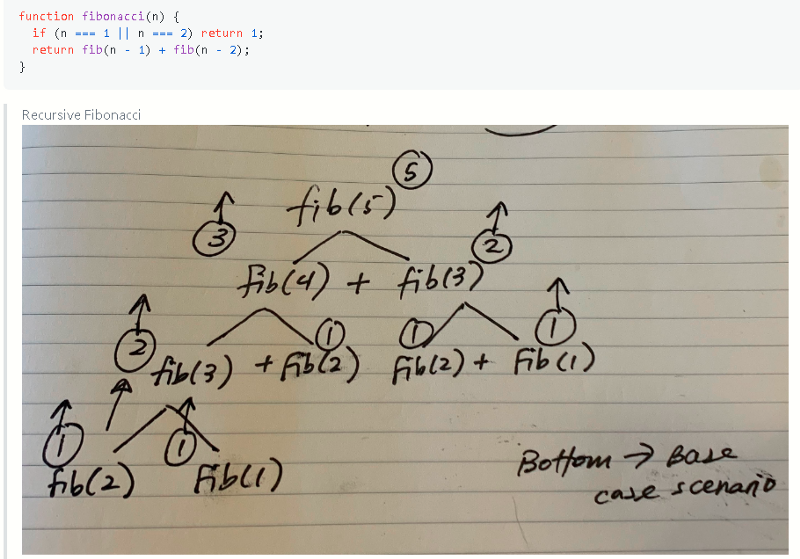 function fibonacci(n) {
if (n === 1 || n === 2) return 1;
return fib(n - 1) + fib(n - 2);
}
Recursive Fibonacci
5
fib(5)
3
2
fib(4) + fib(3)
2
1
1
1
fib(3) + fib(2) fib(2) + fib(1)
1
1
fib(2) fib(1)
Bottom → Base
case scenario